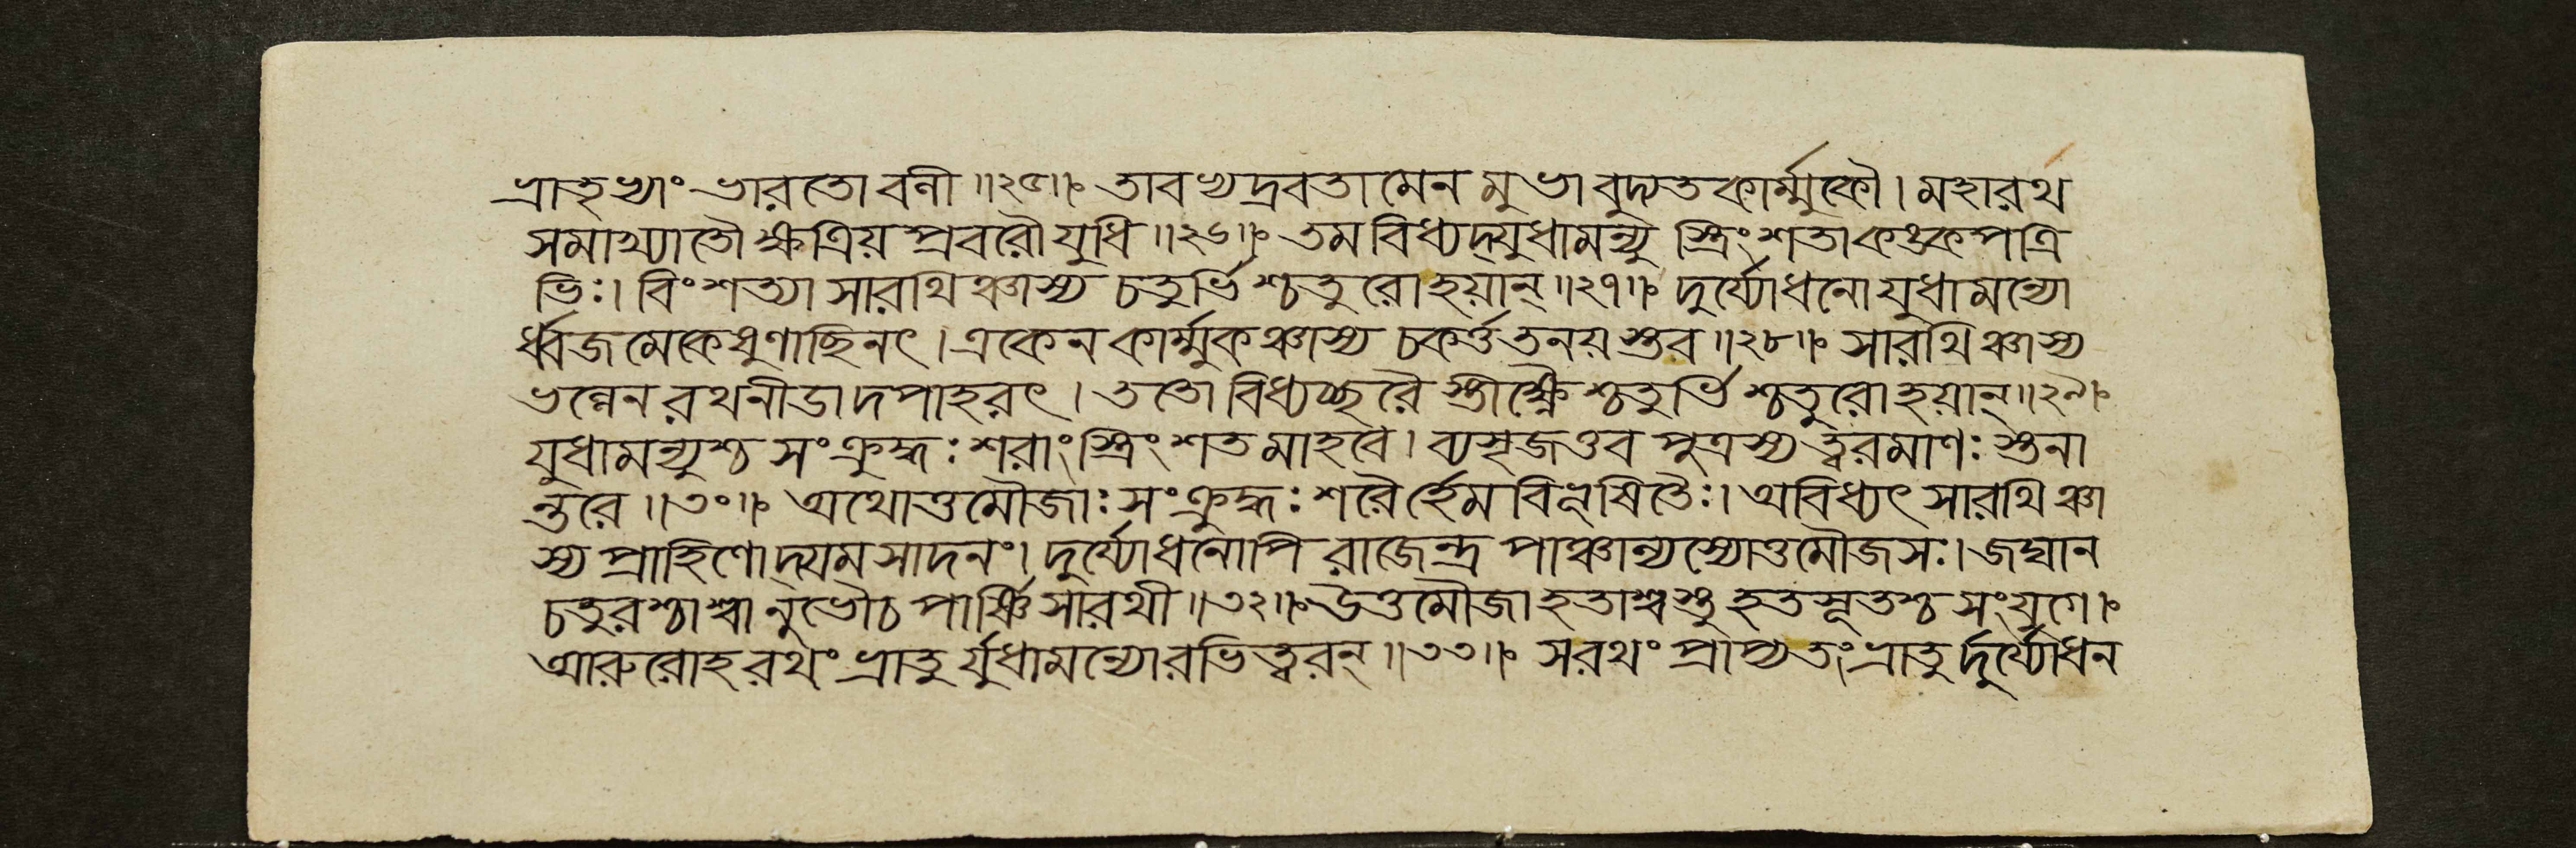 ভ্রাতৃভ্যাং ভারতো বনী ॥২৫॥ তাবভ্যদ্রবতামেনমুভাবুদ্যতকার্ম্মুকৌ। মহারথ
সমাখ্যাতৌ ক্ষত্রিয়প্রবরৌ যুধি ॥২৬॥ তমবিধ্যদ্যুধামন্যু স্ত্রিংশতা কঙ্কপত্রি
ভিঃ। বিংশত্যা সারথিঞ্চাস্য চতুর্ভিশ্চতুরো হয়ান্ ॥২৭॥ দুর্য্যোধনো যুধামন্যো
র্ধ্বজমেকেষুণাছিনৎ। একেন কার্ম্মুকঞ্চাস্য চকর্ত্ত তনয়স্তব ॥২৮॥ সারথিঞ্চাস্য
ভল্লেন রথনীডাদপাহরৎ। ততোবিধ্যচ্ছরৈস্তীক্ষ্ণৈশ্চতুর্ভিশ্চতুরো হয়ান্ ॥২৯॥
যুধামন্যুশ্চ সংক্রুদ্ধঃ শরাংস্ত্রিংশতমাহবে। ব্যসৃজত্তব পুত্রস্য ত্বরমাণঃ স্তনা
ন্তরে ॥৩০॥ অথোত্তমৌজাঃ সংক্রুদ্ধঃ শরৈর্হেমবিভূষিতৈঃ। অবিধ্যৎ সারথিঞ্চা
স্য প্রাহিণোদ্যমসাদনং। দুর্য্যোধনোপি রাজেন্দ্র পাঞ্চাল্যস্যোত্তমৌজসঃ। জঘান
চতুরশ্চাশ্বানুভৌ চ পার্ষ্ণিসারথী ॥৩২॥ উত্তমৌজা হতাশ্বস্তু হতসূতশ্চ সংযুগে।
আরুরোহ রথং ভ্রাতুর্যুধামন্যোরভিত্বরন্ ॥৩৩॥ স রথং প্রাপ্য তং ভ্রাতুর্দুর্য্যোধন